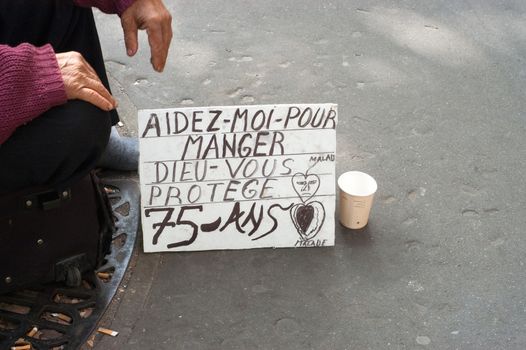 AIDEZ-MOI-POUR
MANGER
MALAD
DIEU-VOUS
PROTÈGE
75-ANS
MALADE